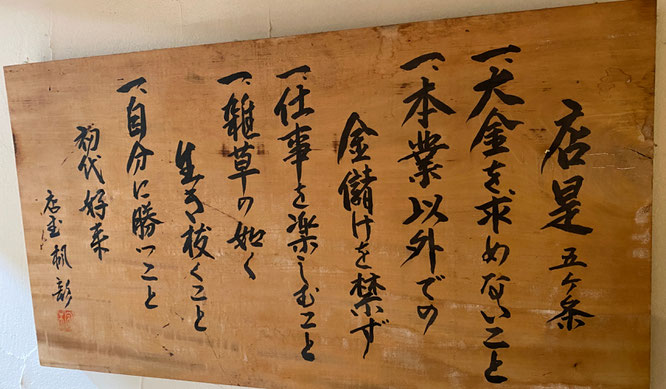 店是 五ヶ条
一、大金を求めないこと
一、本業以外での
金儲けを禁ず
一、仕事を楽しむこと
一、雑草の如く
生き抜くこと
一、自分に勝つこと
初代 好来
店主